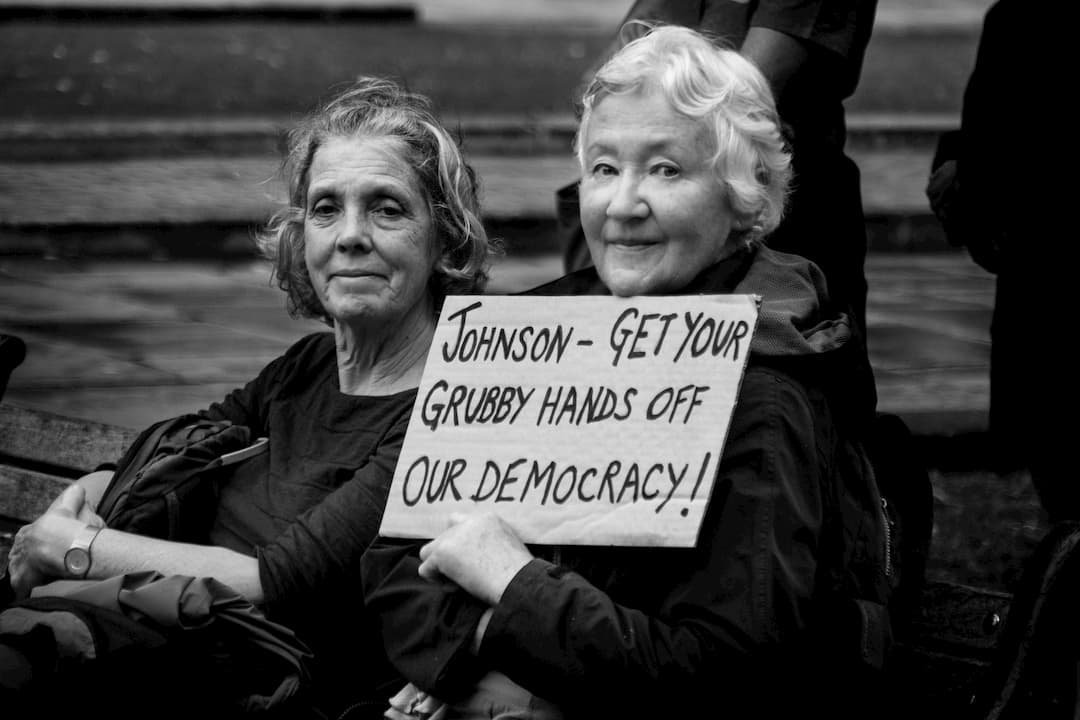 JOHNSON - GET YOUR
GRUBBY HANDS OFF
OUR DEMOCRACY!